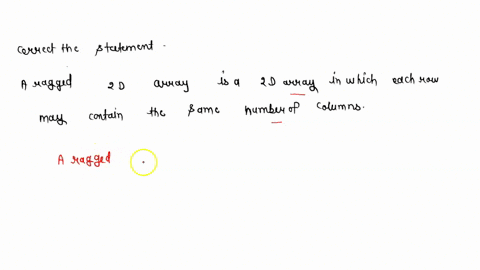 correct the statement.
A ragged 2D array is a 2D array in which each row
may contain the same number of columns.
A ragged